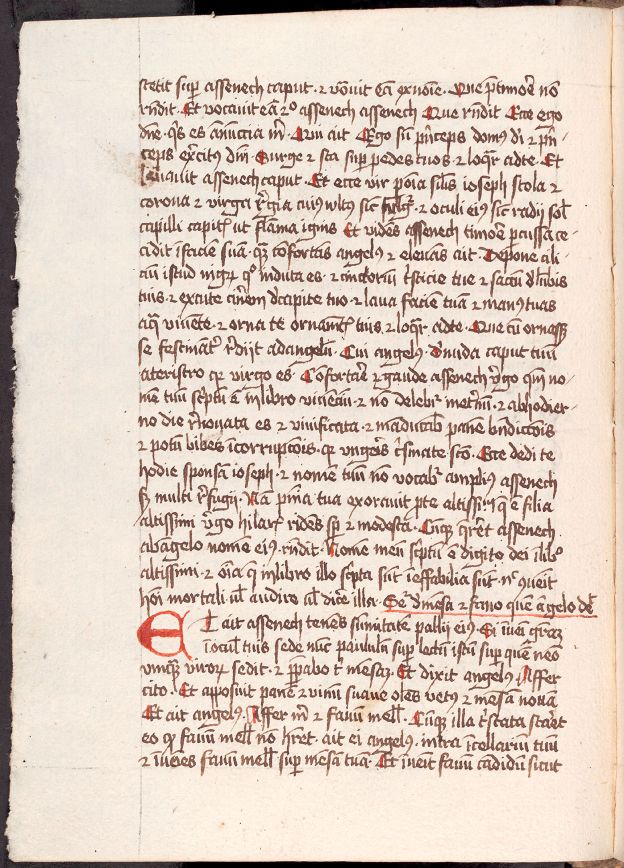 stetit sup̄ assenech caput · ⁊ vōuit eā ex noīe · Que p̄ timōe nō
rn̄dit · Et vocauit eā 2º assenech assenech Que rn̄dit Ecce ego
dn̄e · q̄s es annūccia m̄ · Qui ait Ego sū p̄nceps dom9 dī ⁊ pn̄
ceps ex̄cit9 dn̄i Surge ⁊ sta sup̄ pedes tuos ⁊ loq̄r ad te · Et
leuauit assenech caput · Et ecce vir p oīa sil̄is ioseph stola ⁊
corona ⁊ virga r̄gia cui9 vult9 sic̄ fulg᷑ · ⁊ oculi ei9 sic̄ radii sol̄
capilli capit᷑ ut flāma ignis Et vidēs assenech timōe p̄cussa ce
cidit ī faciē suā · quā ꝯfortās angelus ⁊ eleuās ait Depone cili
ciū istud nigr̄ q̊ induta es · ⁊ cinctoriū t̄sticie tue ⁊ saccū d̄ lūbis
tuis · ⁊ excute cin̄em d̄ capite tuo ⁊ laua faciē tuā ⁊ man9 tuas
aq̄ viuēte · ⁊ orna te ornamēt᷑ tuis ⁊ loq̄r ad te · Que cū ornass᷑
se festināt᷑ r̄dijt ad angelū · Cui angelus D̄nuda caput tuū
a teristro q᷑ virgo es · Cōfortar̄ ⁊ gaude assenech v̄go qm̄ no
men tuū sc̄ptū ē in libro viuenciū · ⁊ nō delebit᷑ īet̄nū · ⁊ ab hodier
no die r̄nouata es ⁊ viuificata · ⁊ māducab᷑ panē bn̄dicc̄ois
⁊ potū bibes īcorrupcōis · q᷑ vnger̄s c̄smate sc̄o · Ecce dedi te
hodie sponsā ioseph · ⁊ nomen tuū nō vocab᷑ ampli9 assenech
sȝ multi r̄fugij · Nā pn̄ia tua exorauit p te altissimū q̄ ē filia
altissimi v̄go hilar᷑ ridēs sp̄ ⁊ modesta · Cūq̄ q̄reret assenech
ab angelo nomē ei9 · rn̄dit · Nomē meū sc̄ptū ē digito dei ī lib᷑o
altissimi · ⁊ oīa q̄ in libro illo sc̄pta sūt īeffabilia sūt · n᷑ queūt
hoī mortali vl̄ audire vl̄ dic̄e illa · Se᷑ d̄ mēsa ⁊ fauo quē āgelo de᷑
Et ait assenech tenēs sūmitatē pallij ei9 · Si inueni graȝ
ī ocul᷑ tuis sede nūc paululū sup̄ lectū istū sup̄ quē nēo
vmq̄ȝ viroꝝ sedit · ⁊ p̄pabo t᷑ mēsaȝ · Et dixit angelus Affer
cito · Et apposuit panē ⁊ vinū suaue olēs vet9 ⁊ mēsā nouā
Et ait angelus · Affer m̄ ⁊ fauū mell᷑ · Cūq̄ illa t̄stata staret
eo q̊ fauū mell᷑ nō h̄ret · ait ei angelus · intra ī cellariū tuū
⁊ īueīes fauū mell᷑ sup̄ mēsā tuā · Et īueīt fauū cādidū sicut